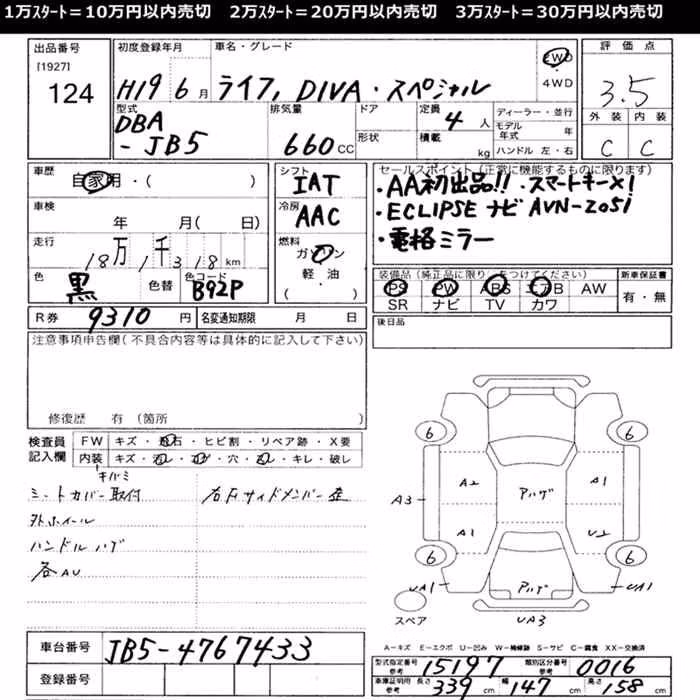 1万ｽﾀｰﾄ＝10万円以内売切　2万ｽﾀｰﾄ＝20万円以内売切　3万ｽﾀｰﾄ＝30万円以内売切
出品番号
[1927]
124
初度登録年月
H19 6月
車名・グレード
ライフ, DIVA・スペシャル
2WD
・
4WD
評価点
3.5
外装 内装
C C
型式
DBA
-JB5
排気量
660CC
ドア
形状
定員 4人
積載 kg
ディーラー・並行
モデル年式 年
ハンドル 左・右
車歴
自家用・( )
車検
年 月( 日)
走行
18万1千318km
色
黒
色替
色コード
B92P
シフト
IAT
冷房
AAC
燃料
ガソリン
軽・油
( )
セールスポイント(正常に機能するものに限ります)
・AA初出品!! ・スマートキー×1
・ECLIPSE ナビ AVN-Z05i
・電格ミラー
装備品(純正品に限り をつけてください)
PS PW ABS エアB AW
SR ナビ TV カワ
新車保証書
有・無
R券 9310円
名変通知期限 月 日
後日品
注意事項申告欄(不具合内容等は具体的に記入して下さい)
修復歴 有(箇所
検査員
記入欄
FW キズ・飛石・ヒビ割・リペア跡・X要
内装 キズ・汚レ・コゲ・穴・ヌレ・キレ・破レ
キバミ
シートカバー取付
外ホイール
ハンドル ハゲ
各AU
右Fサイドメンバー歪
6 6
A3
A2 アハゲ A1
A1 U2
6 6
UA1 アハゲ UA1
UA3
スペア
A－キズ E－エクボ U－凹み W－補修跡 S－サビ C－腐食 XX－交換済
車台番号 JB5-4767433
登録番号
型式指定番号
参考 15197
類別区分番号
参考 0016
車庫証明用
参考
長さ 339cm
幅 147cm
高さ 158cm